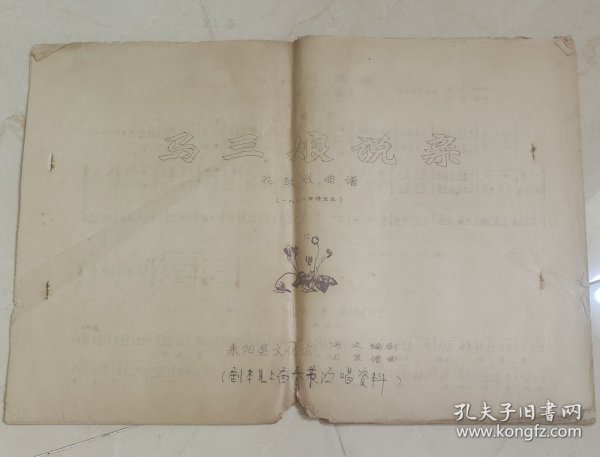 马三娘说亲
花鼓戏曲谱
(一九 年演出本)
耒阳县文化馆 编剧
谱曲
(剧本见上 演唱资料)
孔夫子旧书网
www.kongfz.com